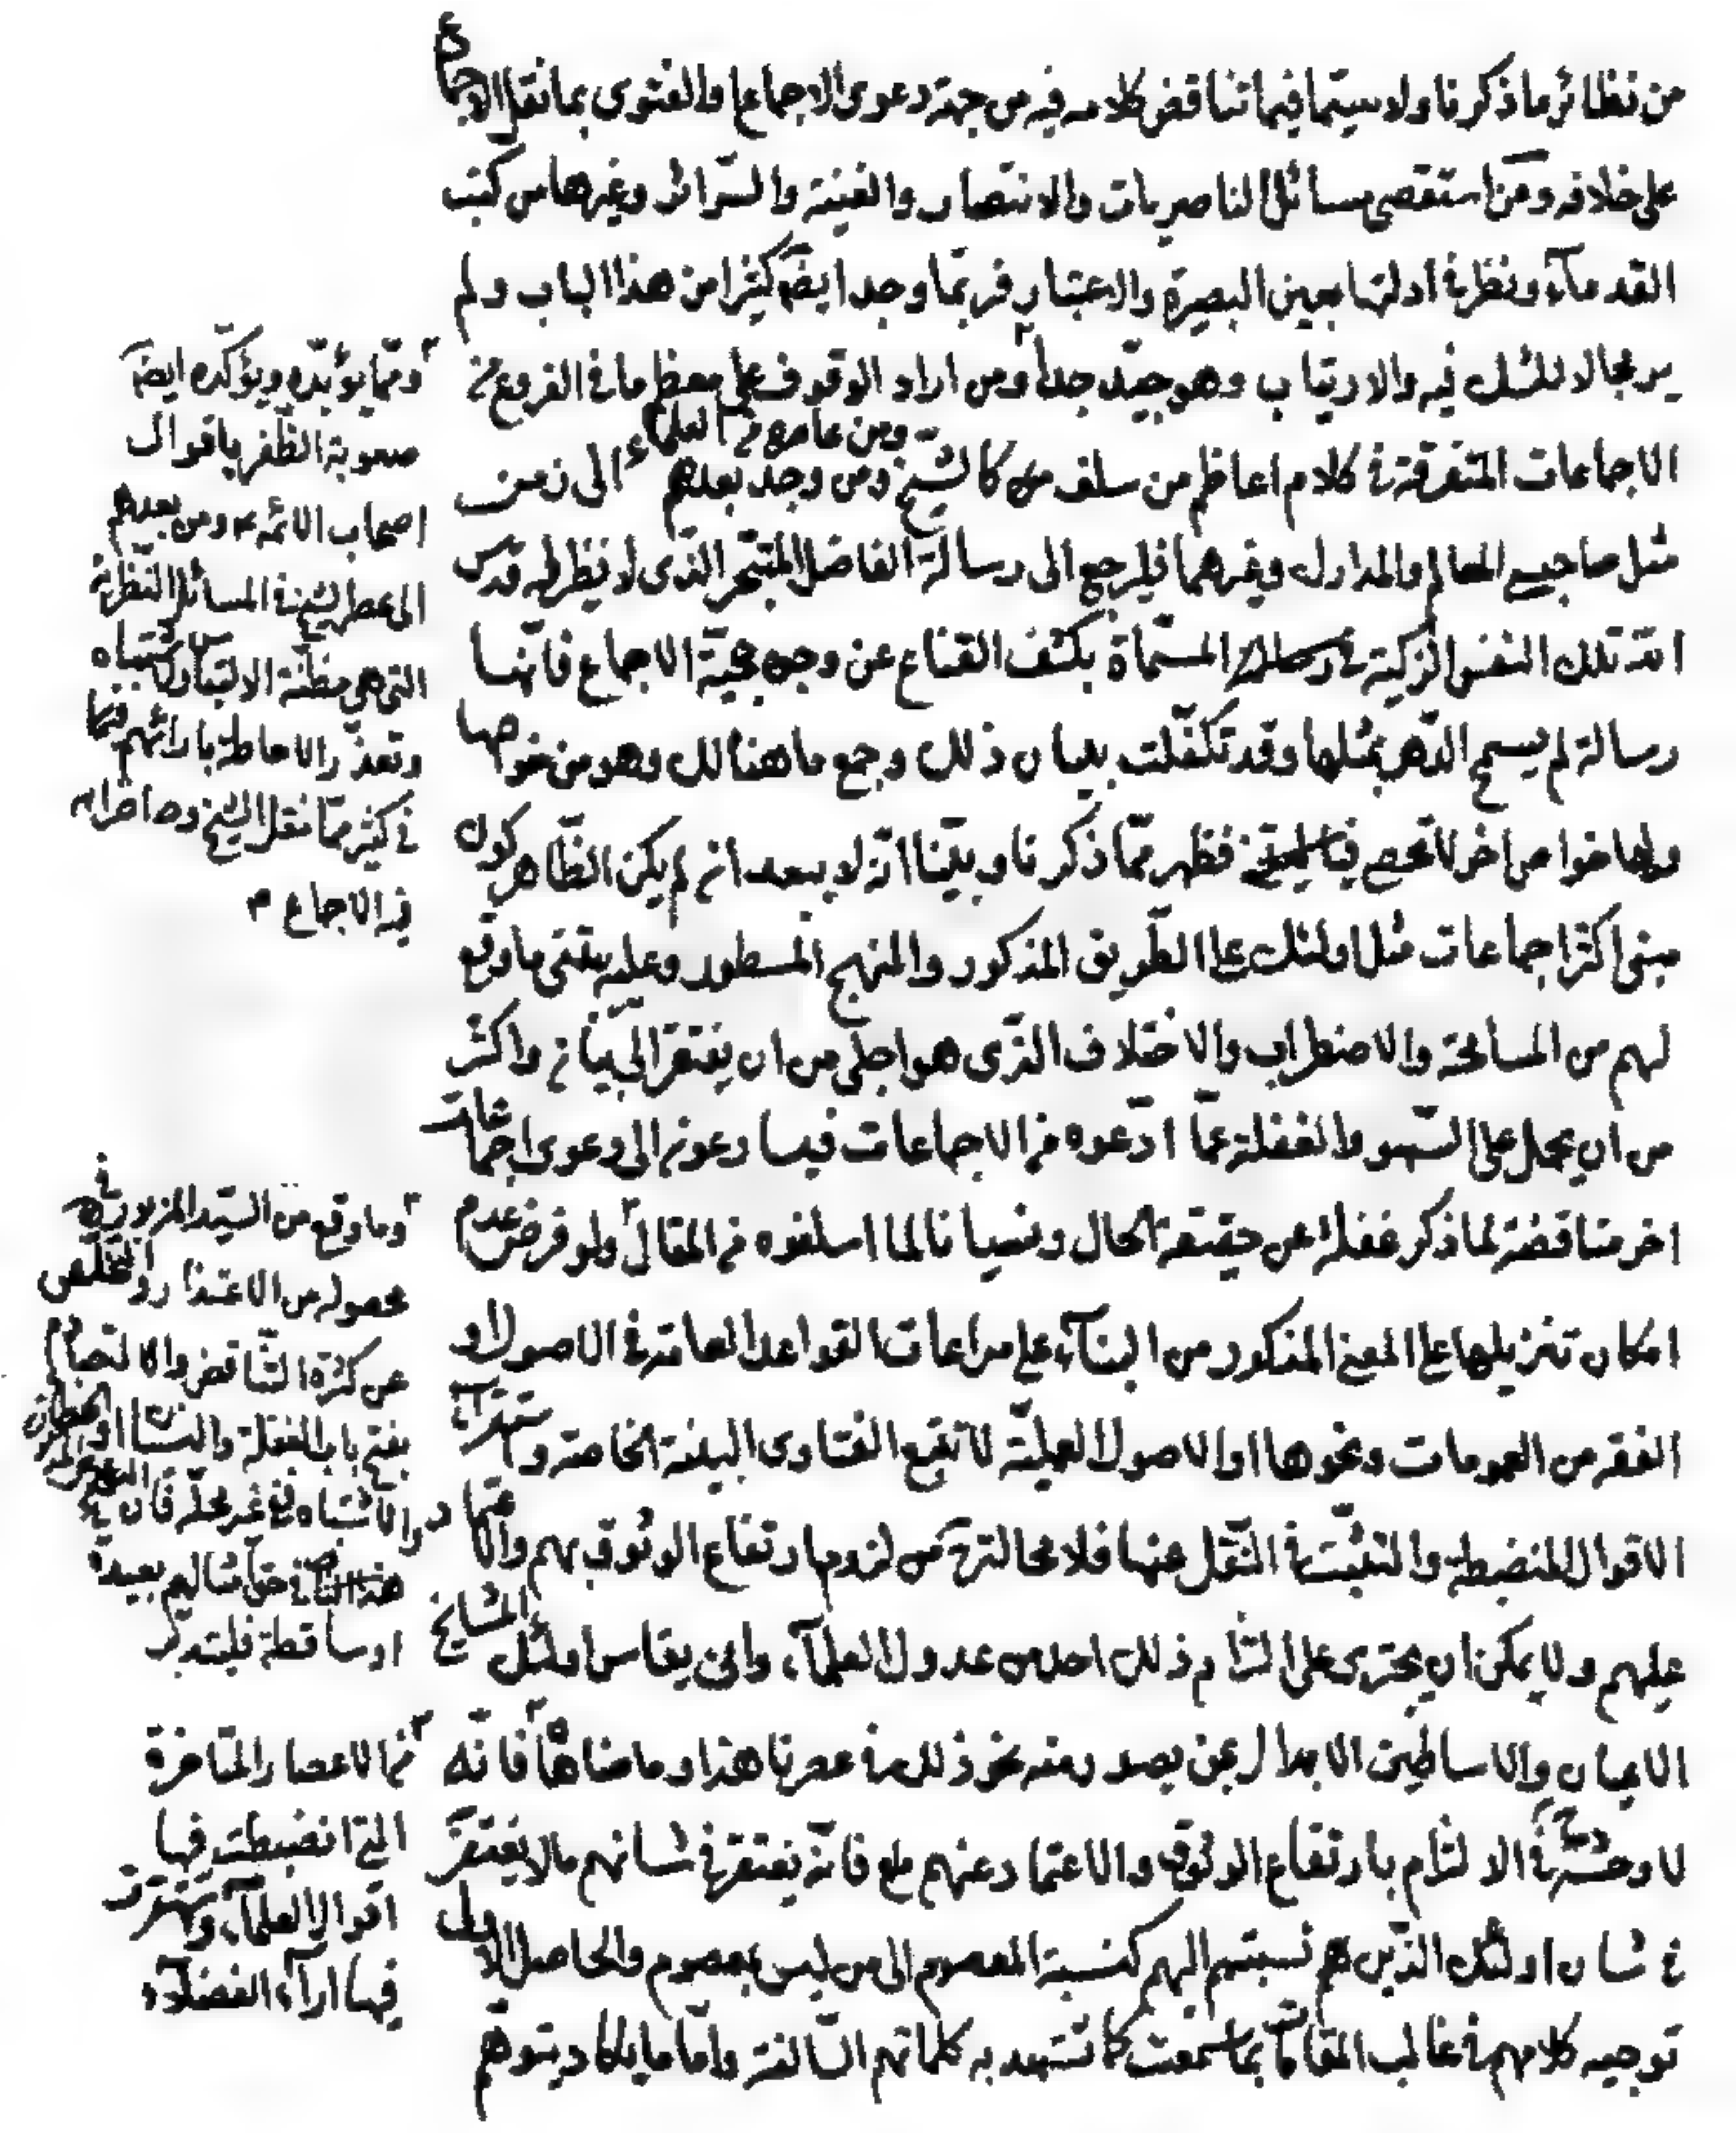 من نظائر ما ذكرنا ولا سيّما فيما تناقض كلامه فيه من جهة دعوى الاجماع والفتوى بما نقل الاجماع
على خلافه ومن استقصى مسائل الناصريات والانتصار والغنية والسّرائر وغيرها من كتب
القدمآء ونظر في ادلتها بعين البصيرة والاعتبار فربّما وجد ايضاً كثيرا من هذا الباب ولم
ير مجالا للشك فيه والارتياب وهو جيّد جدا ومن اراد الوقوف على معظم ما في الفروع من
ومن عاصرهم من العلماء
الاجماعات المتفرقة في كلام اعاظم من سلف كالشيخ ومن وجد بعدهم الى زمن
مثل صاحبي المعالم والمدارك وغيرهما فليرجع الى رسالة الفاضل المتبحر الذى لا نظير له قدس
الله تلك النفس الزكية المسمّاة بكشف القناع عن وجوه حجيّة الاجماع فانّها
رسالة لم يسمح الدّهر بمثلها وقد تكفّلت ببيان ذلك وجمع ما هنالك وهو من خواصها
ولها خواص اخر لا تحصى فظهر ممّا ذكرنا وبيّنا انّه لا يبعد ان لم يكن الظّاهر كون
مبنى اكثر اجماعات مثل اولئك على الطّريق المذكور والمنهج المسطور وعليه يبتنى ما وقع
لهم من المسامحة والاضطراب والاختلاف الذّى هو اجلى من ان يفتقر الى بيان واكثر
من ان يحمل على السّهو والغفلة عمّا ادّعوه من الاجماعات فيسا رعون الى دعوى اجماعات
اخر مناقضة لما ذكر غفلة عن حقيقة الحال ونسيانا لما اسلفوه من المقال ولو فرض عدم
امكان تنزيلها على المعنى المذكور من البنآء على مراعات القواعد العامّة في الاصول او
الفقه من العمومات ونحوها او الاصول العمليّة لا تتبع الفتاوى البيّنة الخاصة واستقرآء
الاقوال المنضبطة والتثبّت في النّقل عنها فلا محالة من لزوم ارتفاع الوثوق بهم والاعتماد
عليهم ولا يمكن ان يجترى على التزام ذلك احد من عدول العلمآء، وانى يقاس امثال المشايخ
الاعيان والاساطين الابدال بمن يصدر منه نحو ذلك في عصرنا هذا وما ضاهاه فانّه
لا وحشة في الالتزام بارتفاع الوثوق والاعتماد عنهم مع فانّه يغتفر في شانهم ما لا يغتفر
في شان اولئك الذّين هم نسبتهم اليهم كنسبة المعصوم الى من ليس بمعصوم والحاصل الاولى
توجيه كلامهم في غالب المقامات بما سمعت كما تشهد به كلماتهم السّالفة وامّا ما يكاد يتوهم
وممّا يؤيّده ويؤكّده ايضاً
صعوبة الظّفر باقوال
اصحاب الائمّة ومن بعدهم
الى عصر الشيخ في المسائل النّظرية
التي هي مظنّة الالتباس والاشتباه
وتعذّر الاحاطة بارائهم فيها
في كثير ممّا نقل الشيخ وما ضاهاه
فيه الاجماع
وما وقع من السّيّد المزبور في
محصوله من الاعتذار والتخلّص
عن كثرة التّناقض والالتجاء
بفتح باب الغفلة والنسيان
والاشتباه في غير محلّه فان
هذا في حق امثالهم بعيدة
او ساقطة فليتدبّر
من الاعصار المتاخرة
التي انضبطت فيها
اقوال العلمآء، واشتهرت
فيها ارآء الفضلآء